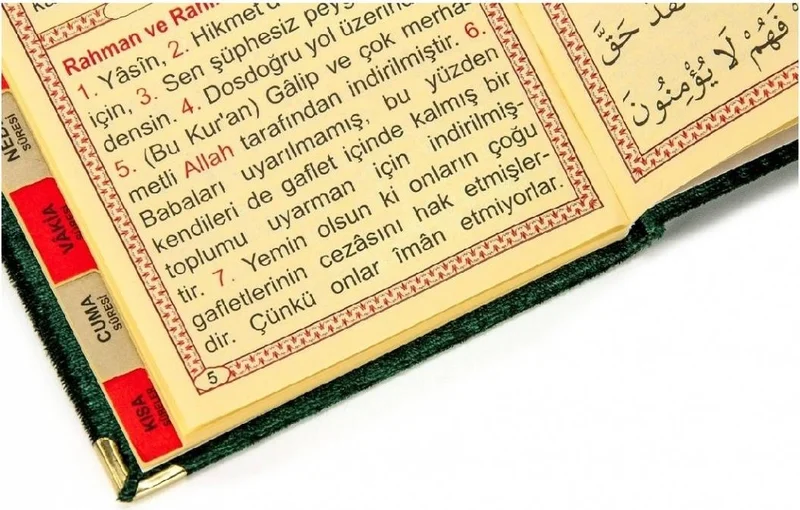 Rahman ve
1. Yâsîn, 2. Hikmet
için, 3. Sen şüphesiz
densin. 4. Dosdoğru yol
5. (Bu Kur'an) Gâlip ve çok merha-
metli Allah tarafından indirilmiştir. 6.
Babaları uyarılmamış, bu yüzden
kendileri de gaflet içinde kalmış bir
toplumu uyarman için indirilmiş-
tir. 7. Yemin olsun ki onların çoğu
gafletlerinin cezâsını hak etmişler-
dir. Çünkü onlar îmân etmiyorlar.
5
SÛRESİ
VÂKIA
CUMA
SÛRESİ
KISA
SÛRELER
حَقَّ
فَهُمْ لَا يُؤْمِنُونَ